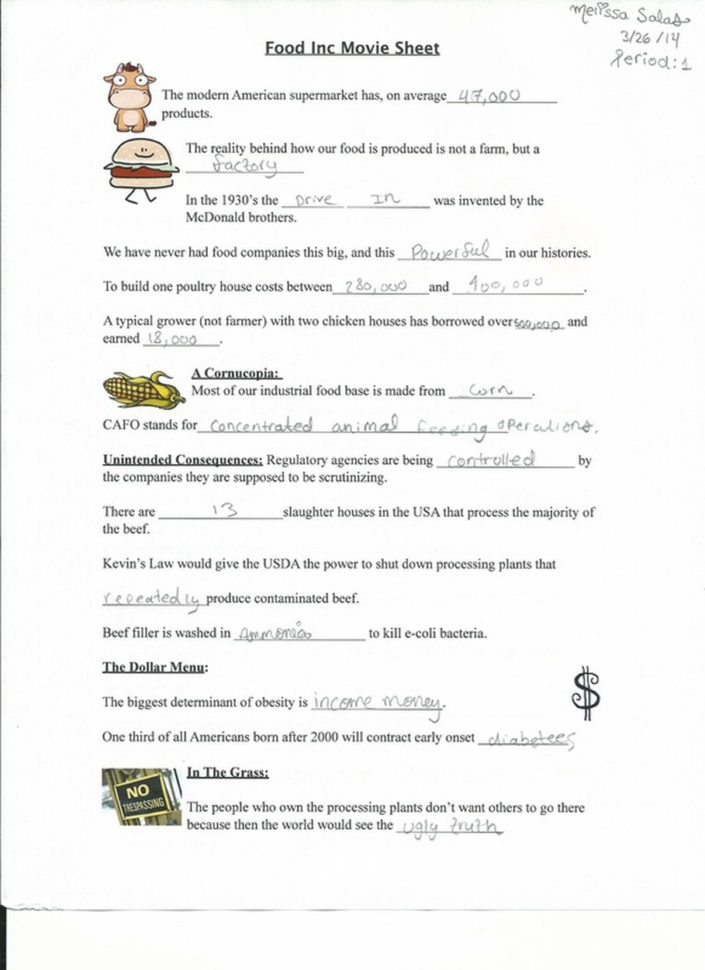 Melissa Salas
3/26/14
Period: 1
Food Inc Movie Sheet
The modern American supermarket has, on average 47,000
products.
The reality behind how our food is produced is not a farm, but a
factory
In the 1930's the Drive In was invented by the
McDonald brothers.
We have never had food companies this big, and this Powerful in our histories.
To build one poultry house costs between 280,000 and 400,000.
A typical grower (not farmer) with two chicken houses has borrowed over 500,000 and
earned 18,000.
A Cornucopia:
Most of our industrial food base is made from Corn.
CAFO stands for Concentrated animal feeding operations.
Unintended Consequences: Regulatory agencies are being controlled by
the companies they are supposed to be scrutinizing.
There are 13 slaughter houses in the USA that process the majority of
the beef.
Kevin's Law would give the USDA the power to shut down processing plants that
repeatedly produce contaminated beef.
Beef filler is washed in Ammonia to kill e-coli bacteria.
The Dollar Menu:
$
The biggest determinant of obesity is income money.
One third of all Americans born after 2000 will contract early onset diabetees
In The Grass:
NO
TRESPASSING
The people who own the processing plants don't want others to go there
because then the world would see the ugly truth